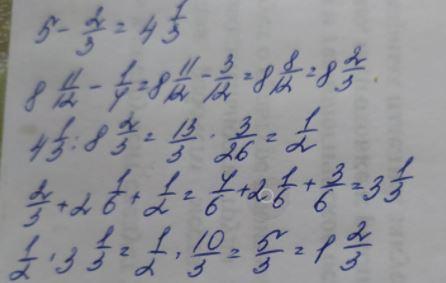 5 - 2/3 = 4 1/3
8 11/12 - 1/4 = 8 11/12 - 3/12 = 8 8/12 = 8 2/3
4 1/3 : 8 2/3 = 13/3 · 3/26 = 1/2
2/3 + 2 1/6 + 1/2 = 4/6 + 2 1/6 + 3/6 = 3 1/3
1/2 · 3 1/3 = 1/2 · 10/3 = 5/3 = 1 2/3